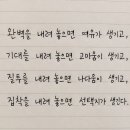 완벽을 내려 놓으면 여유가 생기고,
기대를 내려 놓으면 고마움이 생기고,
질투를 내려 놓으면 나다움이 생기고,
집착을 내려 놓으면 선택지가 생긴다.